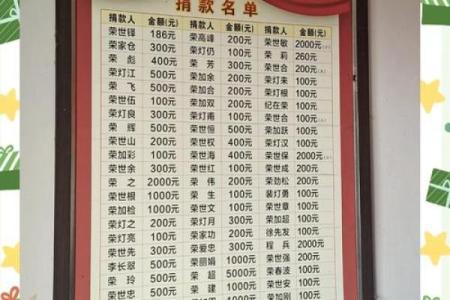 捐款名单
捐款人 金额(元) 捐款人 金额(元) 捐款人 金额(元)
荣世铎 186元 荣高峰 200元 荣世敏 2000元
荣家仓 300元 荣灯仍 100元 荣莉 260元
荣彪 400元 荣芳 300元 荣世合 200元
荣灯江 500元 荣加余 200元 荣灯来 100元
荣飞 500元 荣加合 200元 荣灯根 100元
荣世伍 100元 荣加双 200元 纪在荣 100元
荣灯良 300元 荣灯甫 100元 荣世合 100元
荣辉 500元 荣世恒 500元 荣加跃 100元
荣世山 200元 荣世权 400元 荣灯汉 100元
荣加彩 100元 荣世海 400元 荣世保 2000元
荣世余 300元 荣世红 100元 荣世成 200元
荣之 2000元 荣伟 200元 荣劲松 200元
荣世根 1000元 荣生 200元 裴灯勇 100元
荣加检 1000元 荣世文 100元 荣世章 100元
荣灯之 200元 荣灯月 300元 荣加超 100元
荣灯亮 100元 荣家功 200元 徐先发 100元
荣世先 300元 荣爱忠 300元 程兵 2000元
李长翠 500元 荣丽娟 1000元 荣世强 200元
荣玲 500元 荣超 5000元 荣春波 100元
荣世忠 500元 荣建 2000元 荣世安 100元
荣加刚 100元